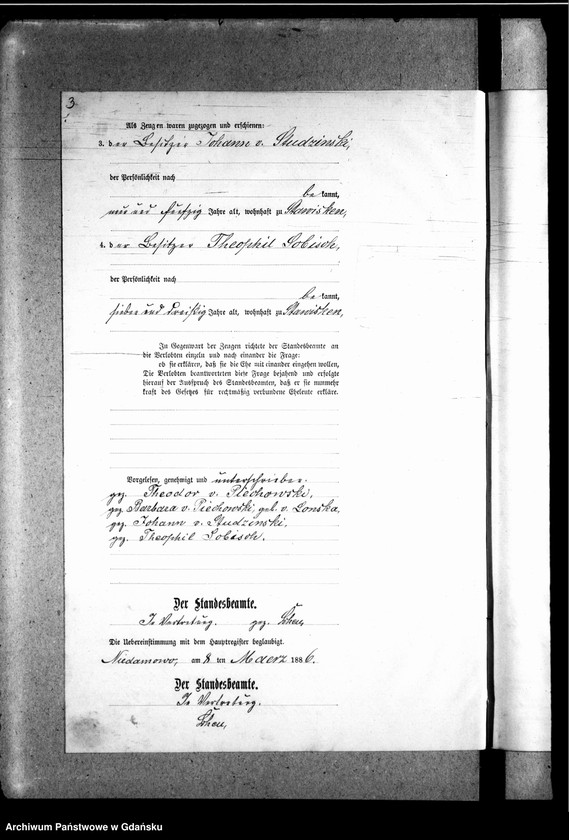 3
Als Zeugen waren zugezogen und erschienen:
3. der Besitzer Johann v. Studzinski,
der Persönlichkeit nach
be kannt,
neun und fünfzig Jahre alt, wohnhaft zu Stawisken,
4. der Besitzer Theophil Sobisch,
der Persönlichkeit nach
be kannt,
sieben und dreißig Jahre alt, wohnhaft zu Stawisken,
In Gegenwart der Zeugen richtete der Standesbeamte an
die Verlobten einzeln und nach einander die Frage:
ob sie erklären, daß sie die Ehe mit einander eingehen wollen,
Die Verlobten beantworteten diese Frage bejahend und erfolgte
hierauf der Ausspruch des Standesbeamten, daß er sie nunmehr
kraft des Gesetzes für rechtmäßig verbundene Eheleute erkläre.
Vorgelesen, genehmigt und unterschrieben.
gez. Theodor v. Piechowski,
gez. Barbara v. Piechowski, geb. v. Lonska,
gez. Johann v. Studzinski,
gez. Theophil Sobisch.
Der Standesbeamte.
In Vertretung. gez.
Die Uebereinstimmung mit dem Hauptregister beglaubigt.
Niedamowo, am 8 ten Maerz 1886.
Der Standesbeamte.
In Vertretung.
Archiwum Państwowe w Gdańsku